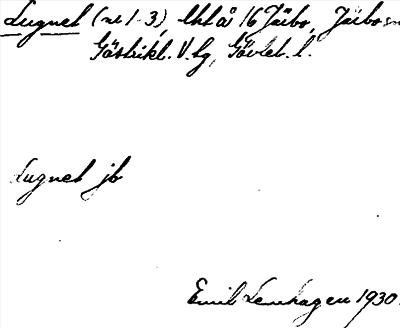 Lugnet (nr 1-3), lht å 16 Jäbo, Järbo sn
Gästrikl. V. tg, Gävleb. l.
Lugnet jb
Emil Lenhagen 1930.